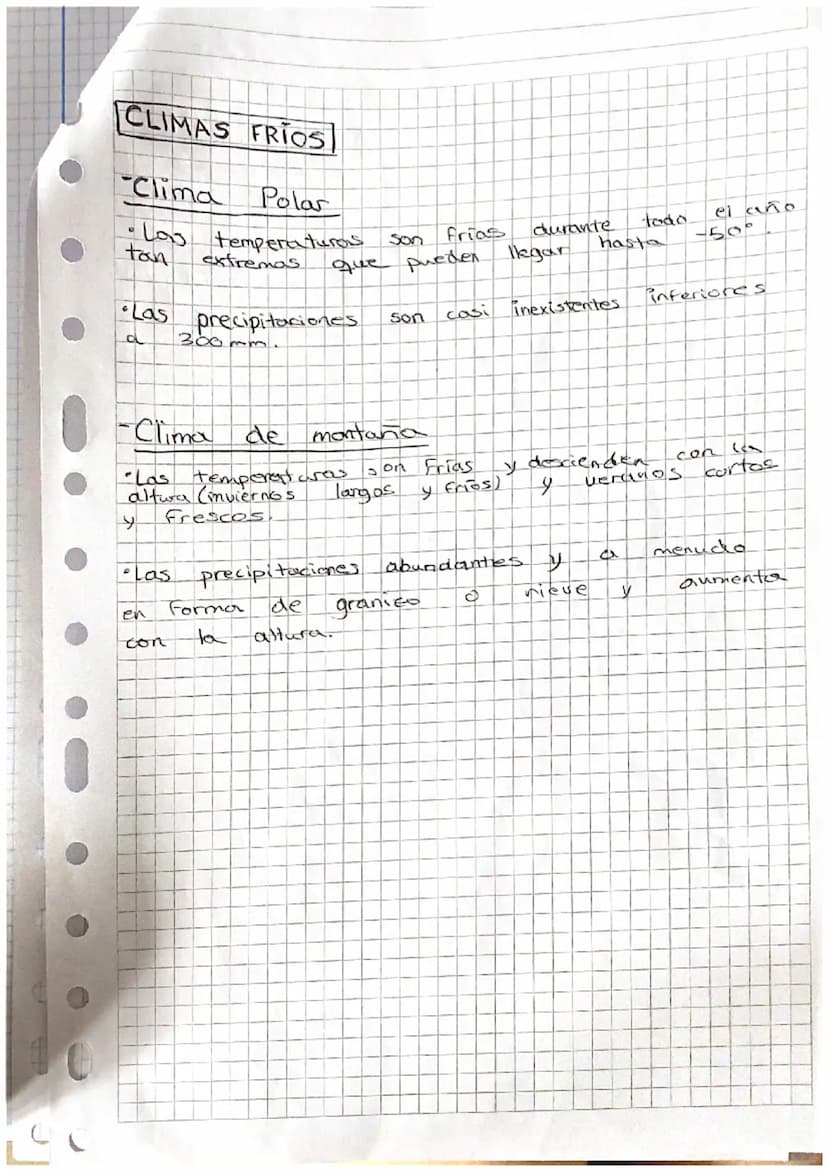 CLIMAS FRÍOS
-Clima Polar
•Las temperaturas son frías durante todo el año
tan extremas que pueden llegar hasta -50°.
•Las precipitaciones son casi inexistentes inferiores
a 300mm.
-Clima de montaña
•Las temperaturas son Frías y descienden con la
altura (inviernos largos y fríos) y veranos cortos
y frescos.
•Las precipitaciones abundantes y a menudo
en forma de granizo o nieve y aumenta
con la altura.